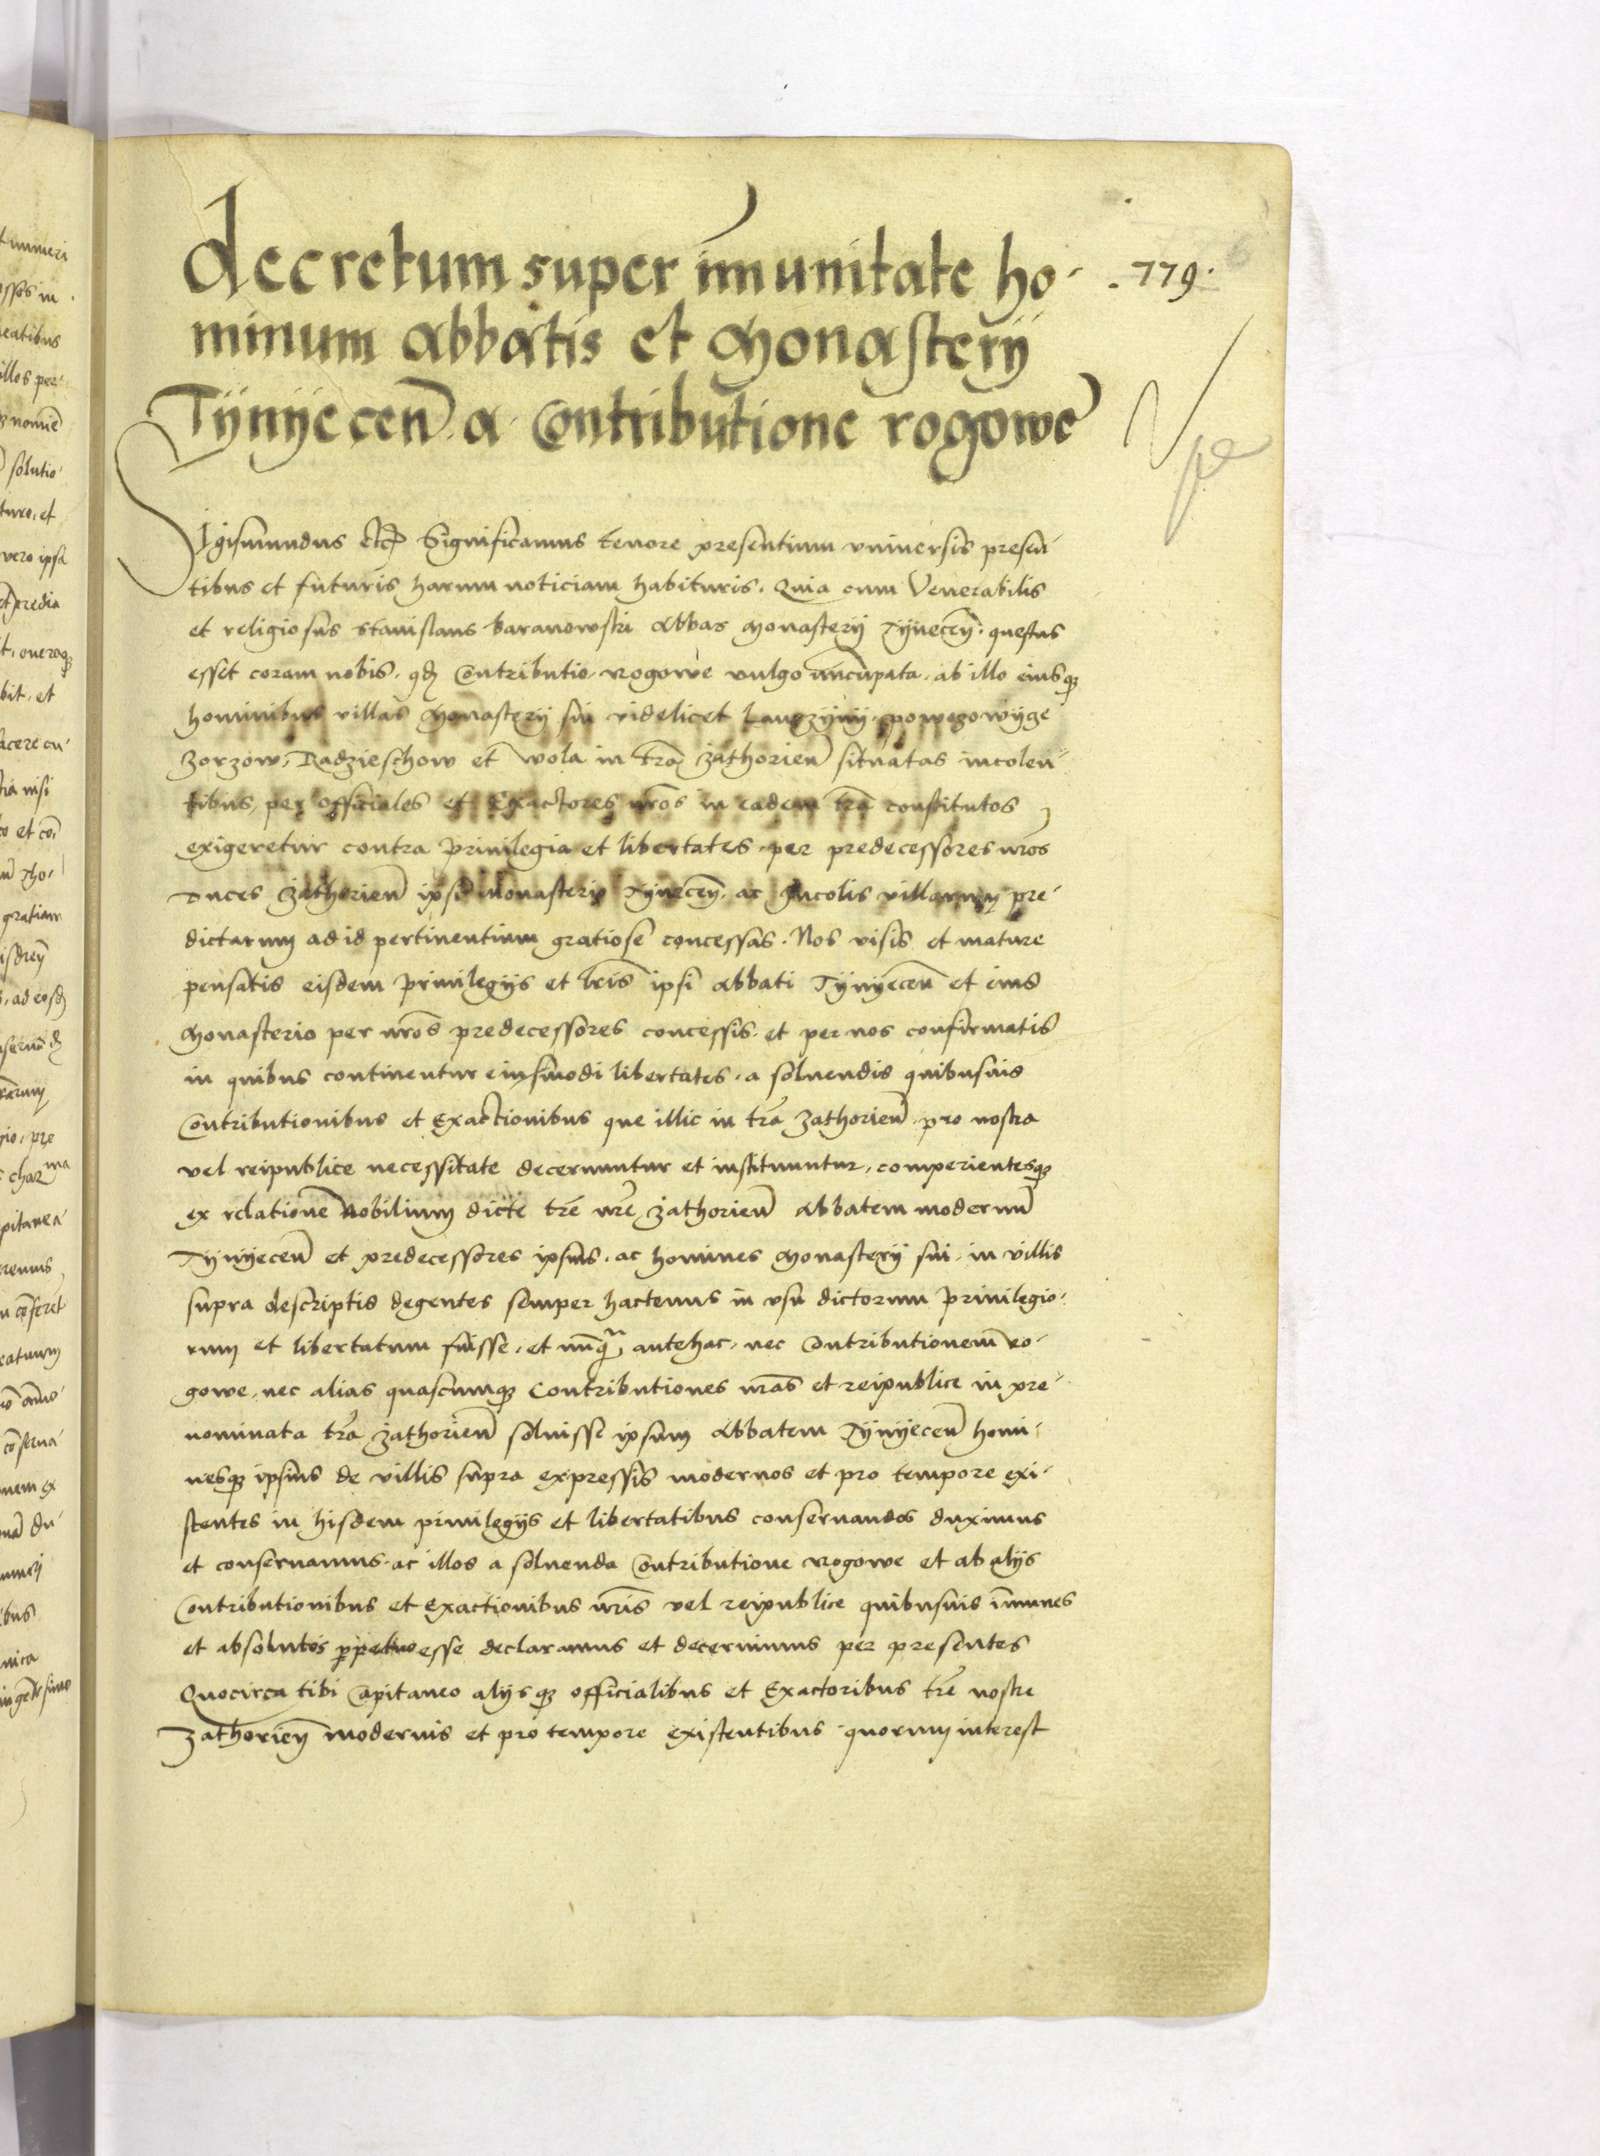 decretum super im̄unitate ho-
minum Abbatis et Monasterij
Tÿnÿecen̄ . a Contributione rogowe
.779.
Sigismundus etc̄ Significamus tenore presentium vniuersis presen-
tibus et futuris harum noticiam habituris . Quia cum Venerabilis
et religiosus Stanislaus Baranowski Abbas Monasterij Tÿnecen̄ . questus
esset coram nobis . qđ Contributio Rogowe vulgo nuncupata . ab illo eiusqȝ
hominibus villas Monasterij sui videlicet Lanczÿnÿ . powezowÿge
Zorzow, Radzieschow et wola in tr̄a Zathorien̄ situatas incolen-
tibus, per officiales et Exactores nr̄os in eadem tr̄a constitutos
exigeretur contra Priuilegia et libertates . per predecessores nr̄os
Duces Zathorien̄ ipsi Monasterio Tÿnecen̄ . ac Incolis villarum pre-
dictarum ad id pertinentium gratiose concessas . Nos visis et mature
pensatis eisdem Priuilegijs et lr̄is ipsi Abbati Tÿnÿecen̄ et eius
Monasterio per nr̄os predecessores concessis . et per nos confirmatis
in quibus continentur eiusmodi libertates . a soluendis quibusuis
Contributionibus et Exactionibus que illic in tr̄a Zathorien̄ pro nostra
vel reipublice necessitate decernuntur et instituuntur, comperientesqȝ
ex relatione Nobilium dicte tr̄e nr̄e Zathorien̄ Abbatem modernū
Tÿnÿecen̄ et predecessores ipsius . ac homines Monasterij sui . in villis
supra descriptis degentes semper hactenus in vsu dictorum Priuilegio-
rum et libertatum fuisse . et nūqȝ antehac . nec Contributionem ro-
gowe . nec alias quascumqȝ Contributiones nr̄as et reipublice in pre-
nominata tr̄a Zathorien̄ soluisse ipsum Abbatem Tÿnÿecen̄ homi-
nesqȝ ipsius de villis supra expressis modernos et pro tempore exi-
stentes in hisdem priuilegijs et libertatibus conseruandos duximus
et conseruamus . ac illos a soluenda Contributione Rogowe et ab alijs
Contributionibus et Exactionibus nr̄is vel reipublice quibusuis im̄unes
et absolutos ꝑpetuo esse declaramus et decernimus per presentes
Quocirca tibi Capitaneo alijsqȝ officialibus et Exactoribus tr̄e nostre
Zathorien̄ modernis et pro tempore existentibus . quorum interest